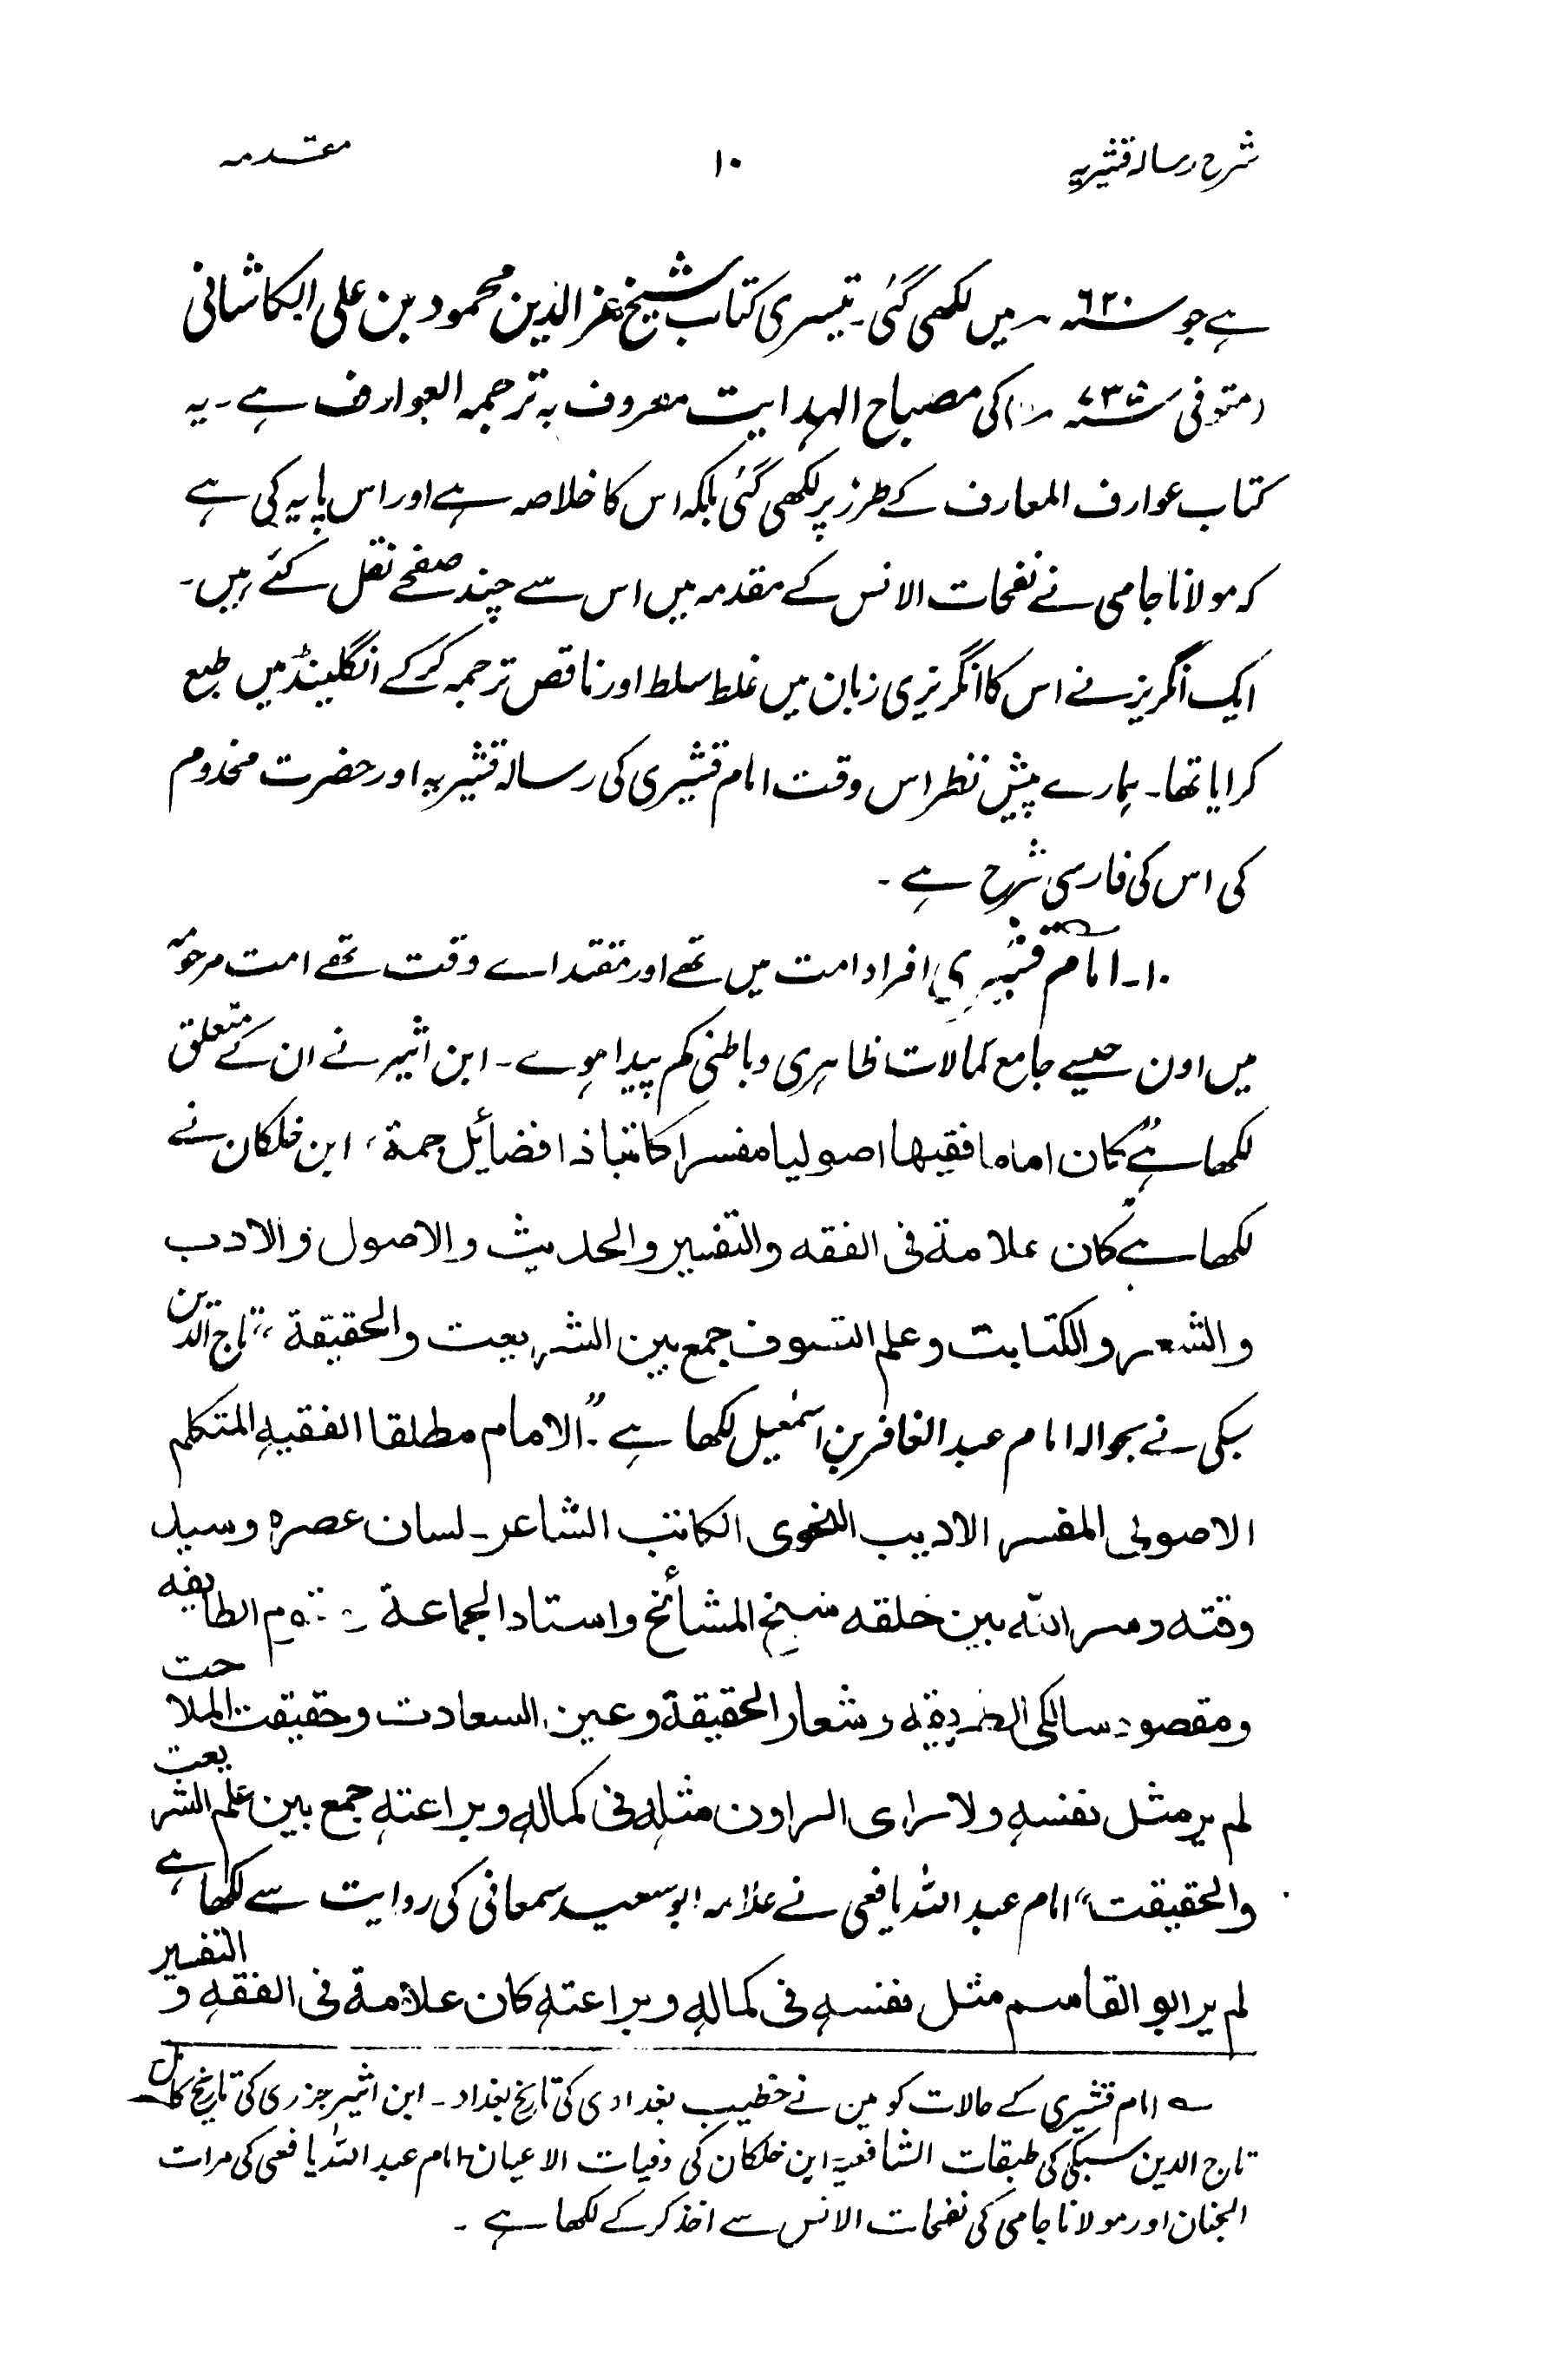 شرح رسالہ قشیریہ
۱۰
مقدمہ
ہے جو سنہ ۶۲۰ھ میں لکھی گئی۔ تیسری کتاب شیخ عز الدین محمود بن علی الکاشانی
(متوفی سنہ ھ) کی مصباح الہدایت معروف بہ ترجمہ العوارف ہے۔ یہ
کتاب عوارف المعارف کے طرز پر لکھی گئی بلکہ اس کا خلاصہ ہے اور اس پایہ کی ہے
کہ مولانا جامی نے نفحات الانس کے مقدمہ میں اس سے چند صفحے نقل کئے ہیں۔
ایک انگریز نے اس کا انگریزی زبان میں غلط سلط اور ناقص ترجمہ کرکے انگلینڈ میں طبع
کرایا تھا۔ ہمارے پیش نظر اس وقت امام قشیری کی رسالہ قشیریہ اور حضرت مخدوم
کی اس کی فارسی شرح ہے۔
۱۰۔ امام قشیری افراد امت میں تھے اور مقتداے وقت تھے امت مرحومہ
میں اون جیسے جامع کمالات ظاہری و باطنی کم پیدا ہوے۔ ابن اثیر نے ان کے متعلق
لکھا ہے "کان اماما فقیھا اصولیا مفسرا کاتبا ذا فضایٔل جمة، ابن خلکان نے
لکھا ہے کان علامة فی الفقه والتفسیر والحدیث والاصول والادب
والشعر والکتابت وعلم التسوف جمع بین الشریعت والحقیقة" تاج الدین
سبکی نے بحوالہ امام عبد الغافر بن اسمٰعیل لکھا ہے۔ "الامام مطلقا الفقیہ المتکلم
الاصولی المفسر الادیب النحوی الکاتب الشاعر۔ لسان عصرہ وسید
وقتہ وسر اللہ بین خلقہ شیخ المشائخ واستاد الجماعة الطایفہ
ومقصود سالکی الطریقہ وشعار الحقیقة وعین السعادت وحقیقت الملاحت
لم یر مثل نفسہ ولا رای الراون مثلہ فی کمالہ وبراعتہ جمع بین علم الشریعت
والحقیقت" امام عبد اللہ یافعی نے علامہ ابو سعید سمعانی کی روایت سے لکھا ہے
لم یر ابو القاسم مثل نفسہ فی کمالہ وبراعتہ کان علامة فی الفقہ والتفسیر
؎ امام قشیری کے حالات کو مین نے خطیب بغدادی کی تاریخ بغداد۔ ابن اثیر جزری کی تاریخ کامل
تاج الدین سبکی کی طبقات الشافعیۃ ابن خلکان کی وفیات الاعیان امام عبد اللہ یافعی کی مرات
الجنان اور مولانا جامی کی نفحات الانس سے اخذ کرکے لکھا ہے۔